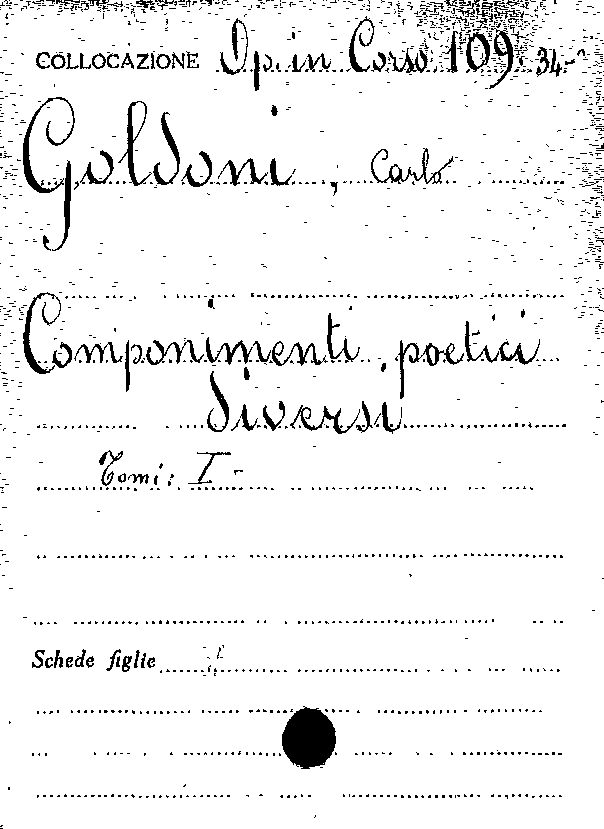 COLLOCAZIONE Op. in Corso. 109. 34-
Goldoni, Carlo
Componimenti poetici
diversi
Tomi: I -
Schede figlie